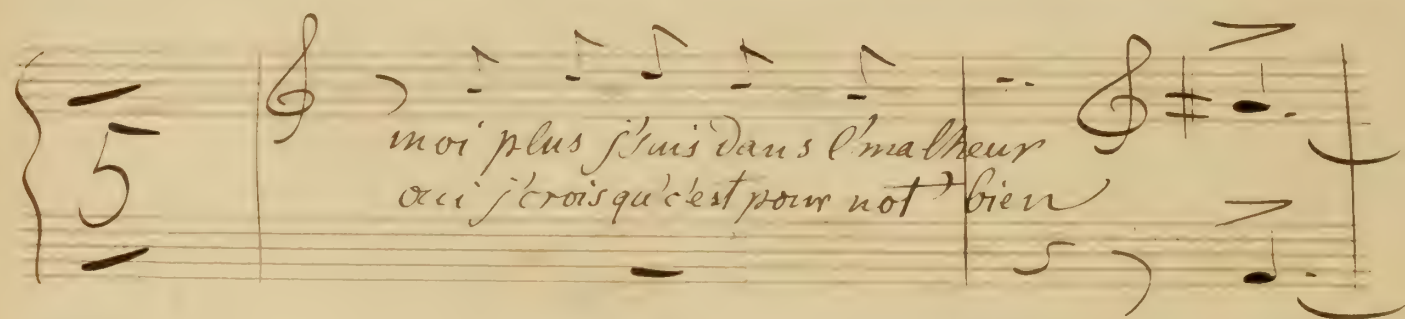 5
moi plus j'suis dans l'malheur
oui j'crois qu'c'est pour not' bien